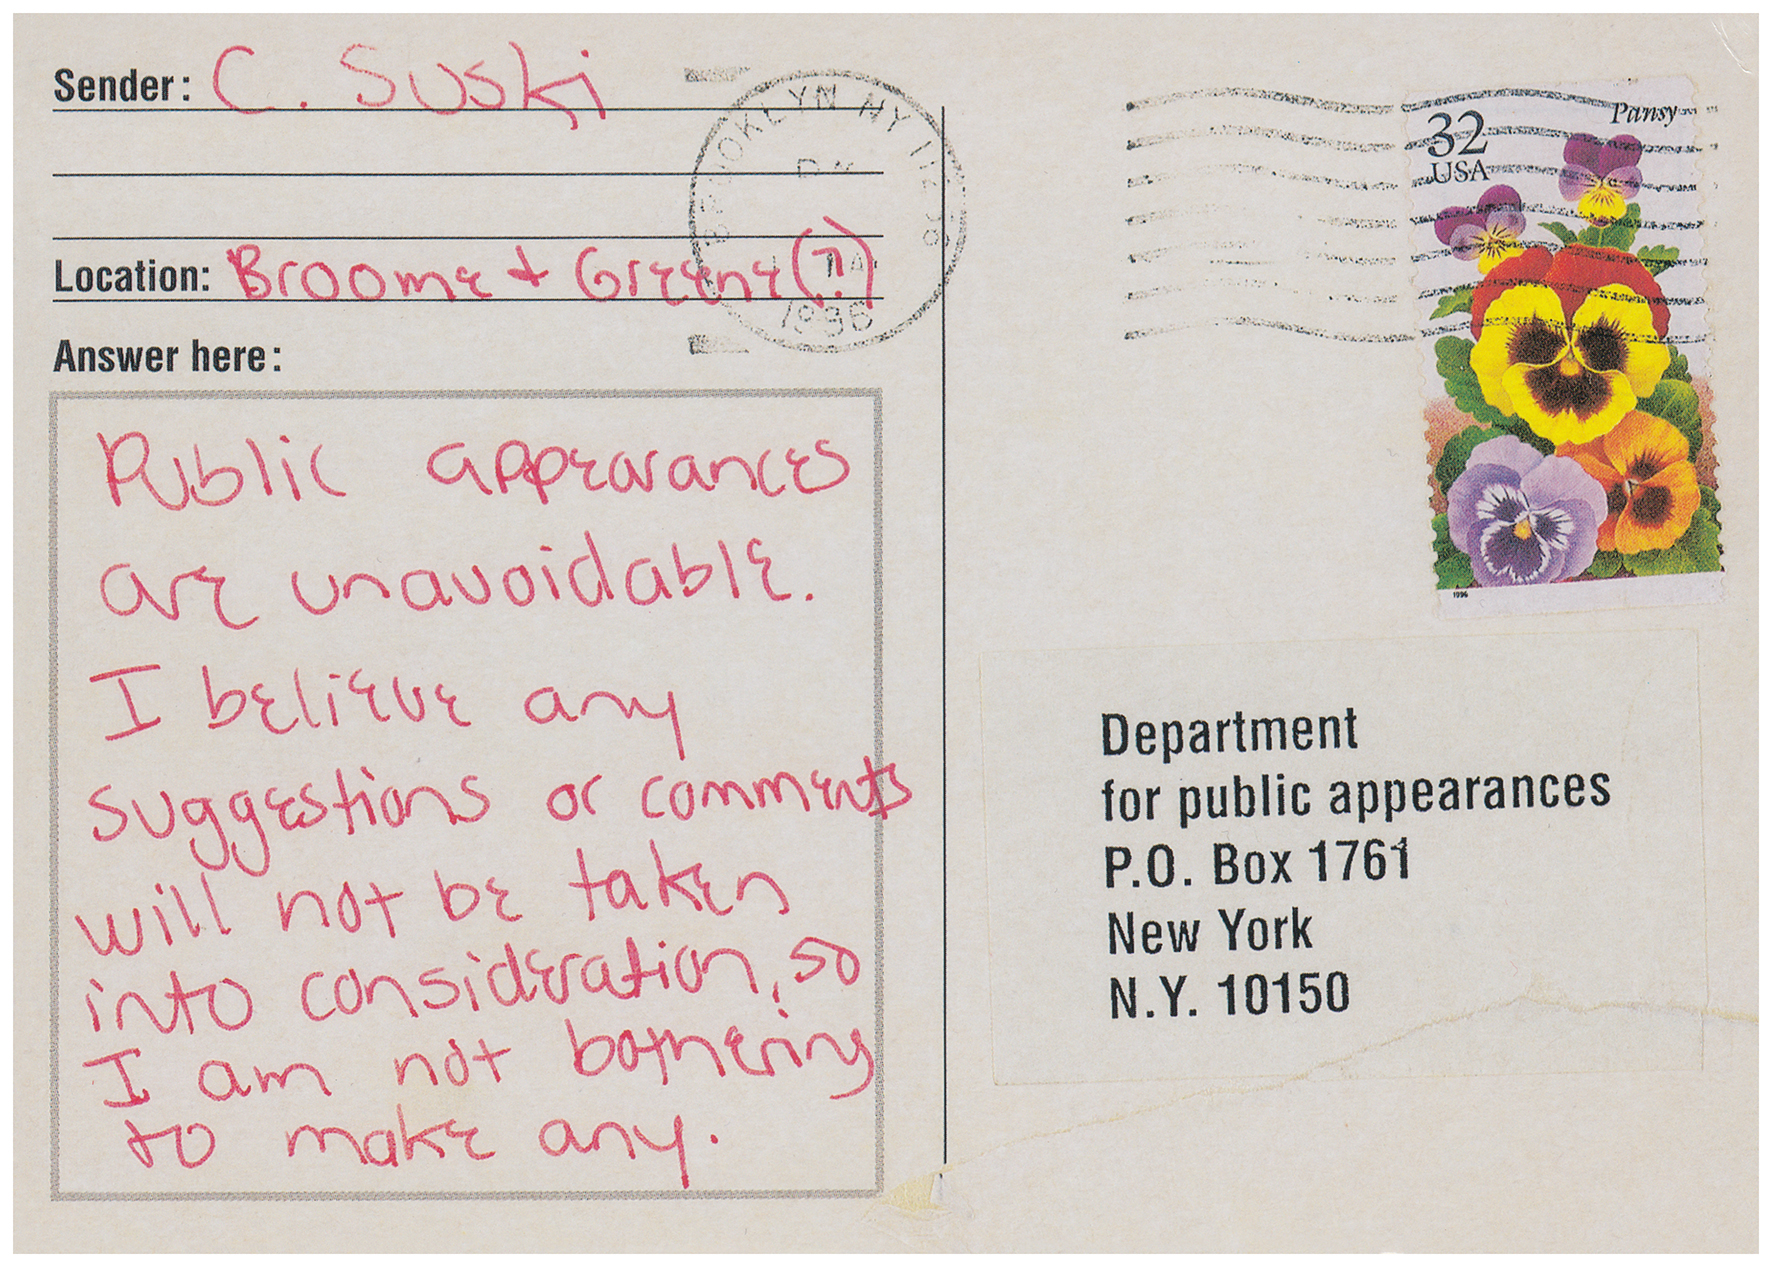 Sender: C. Suski
Location: Broome + Greene(?)
Answer here:
Public appearances
are unavoidable.
I believe any
suggestions or comments
will not be taken
into consideration, so
I am not bothering
to make any.
BROOKLYN NY
PM
1996
Pansy
32
USA
1996
Department
for public appearances
P.O. Box 1761
New York
N.Y. 10150